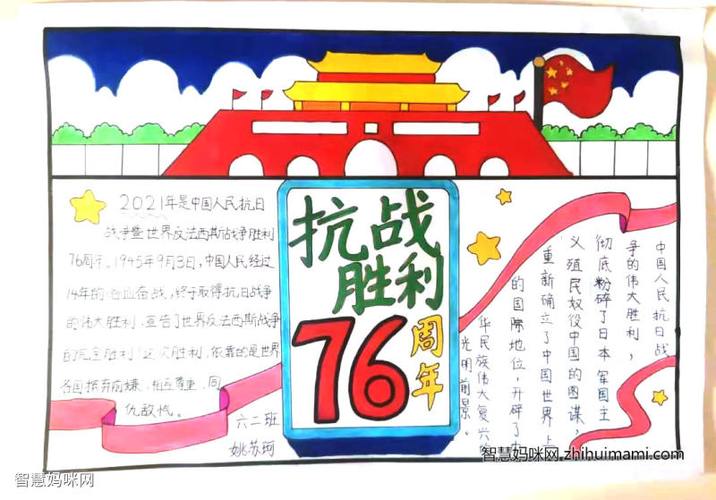 2021年是中国人民抗日
战争暨世界反法西斯战争胜利
76周年。1945年9月3日，中国人民经过
14年的浴血奋战，终于取得抗日战争
的伟大胜利，宣告了世界反法西斯战争
的完全胜利！这次胜利，依靠的是世界
各国摈弃前嫌，相互尊重，同
仇敌忾。
六二班
姚苏珂
抗战
胜利
76
周年
中国人民抗日战
争的伟大胜利，
彻底粉碎了日本军国主
义殖民奴役中国的图谋，
重新确立了中国世界上
的国际地位，开辟了中
华民族伟大复兴的
光明前景。
智慧妈咪网.zhihuimami.com
智慧妈咪网